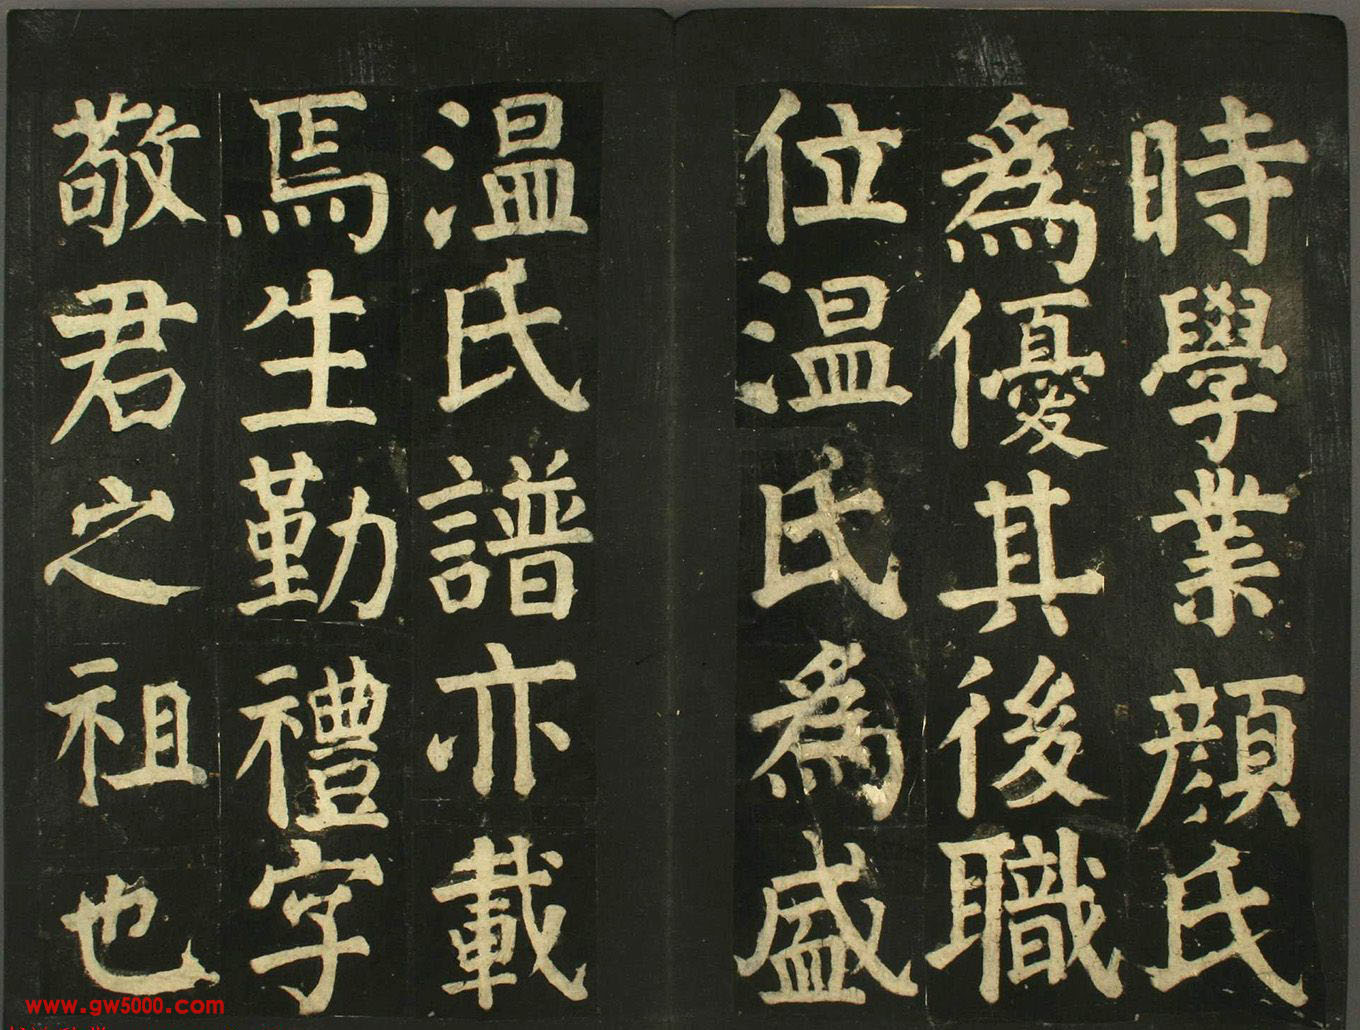 時學業顏氏
爲優其後職
位溫氏爲盛
溫氏譜亦載
焉生勤禮字
敬君之祖也
www.gw5000.com